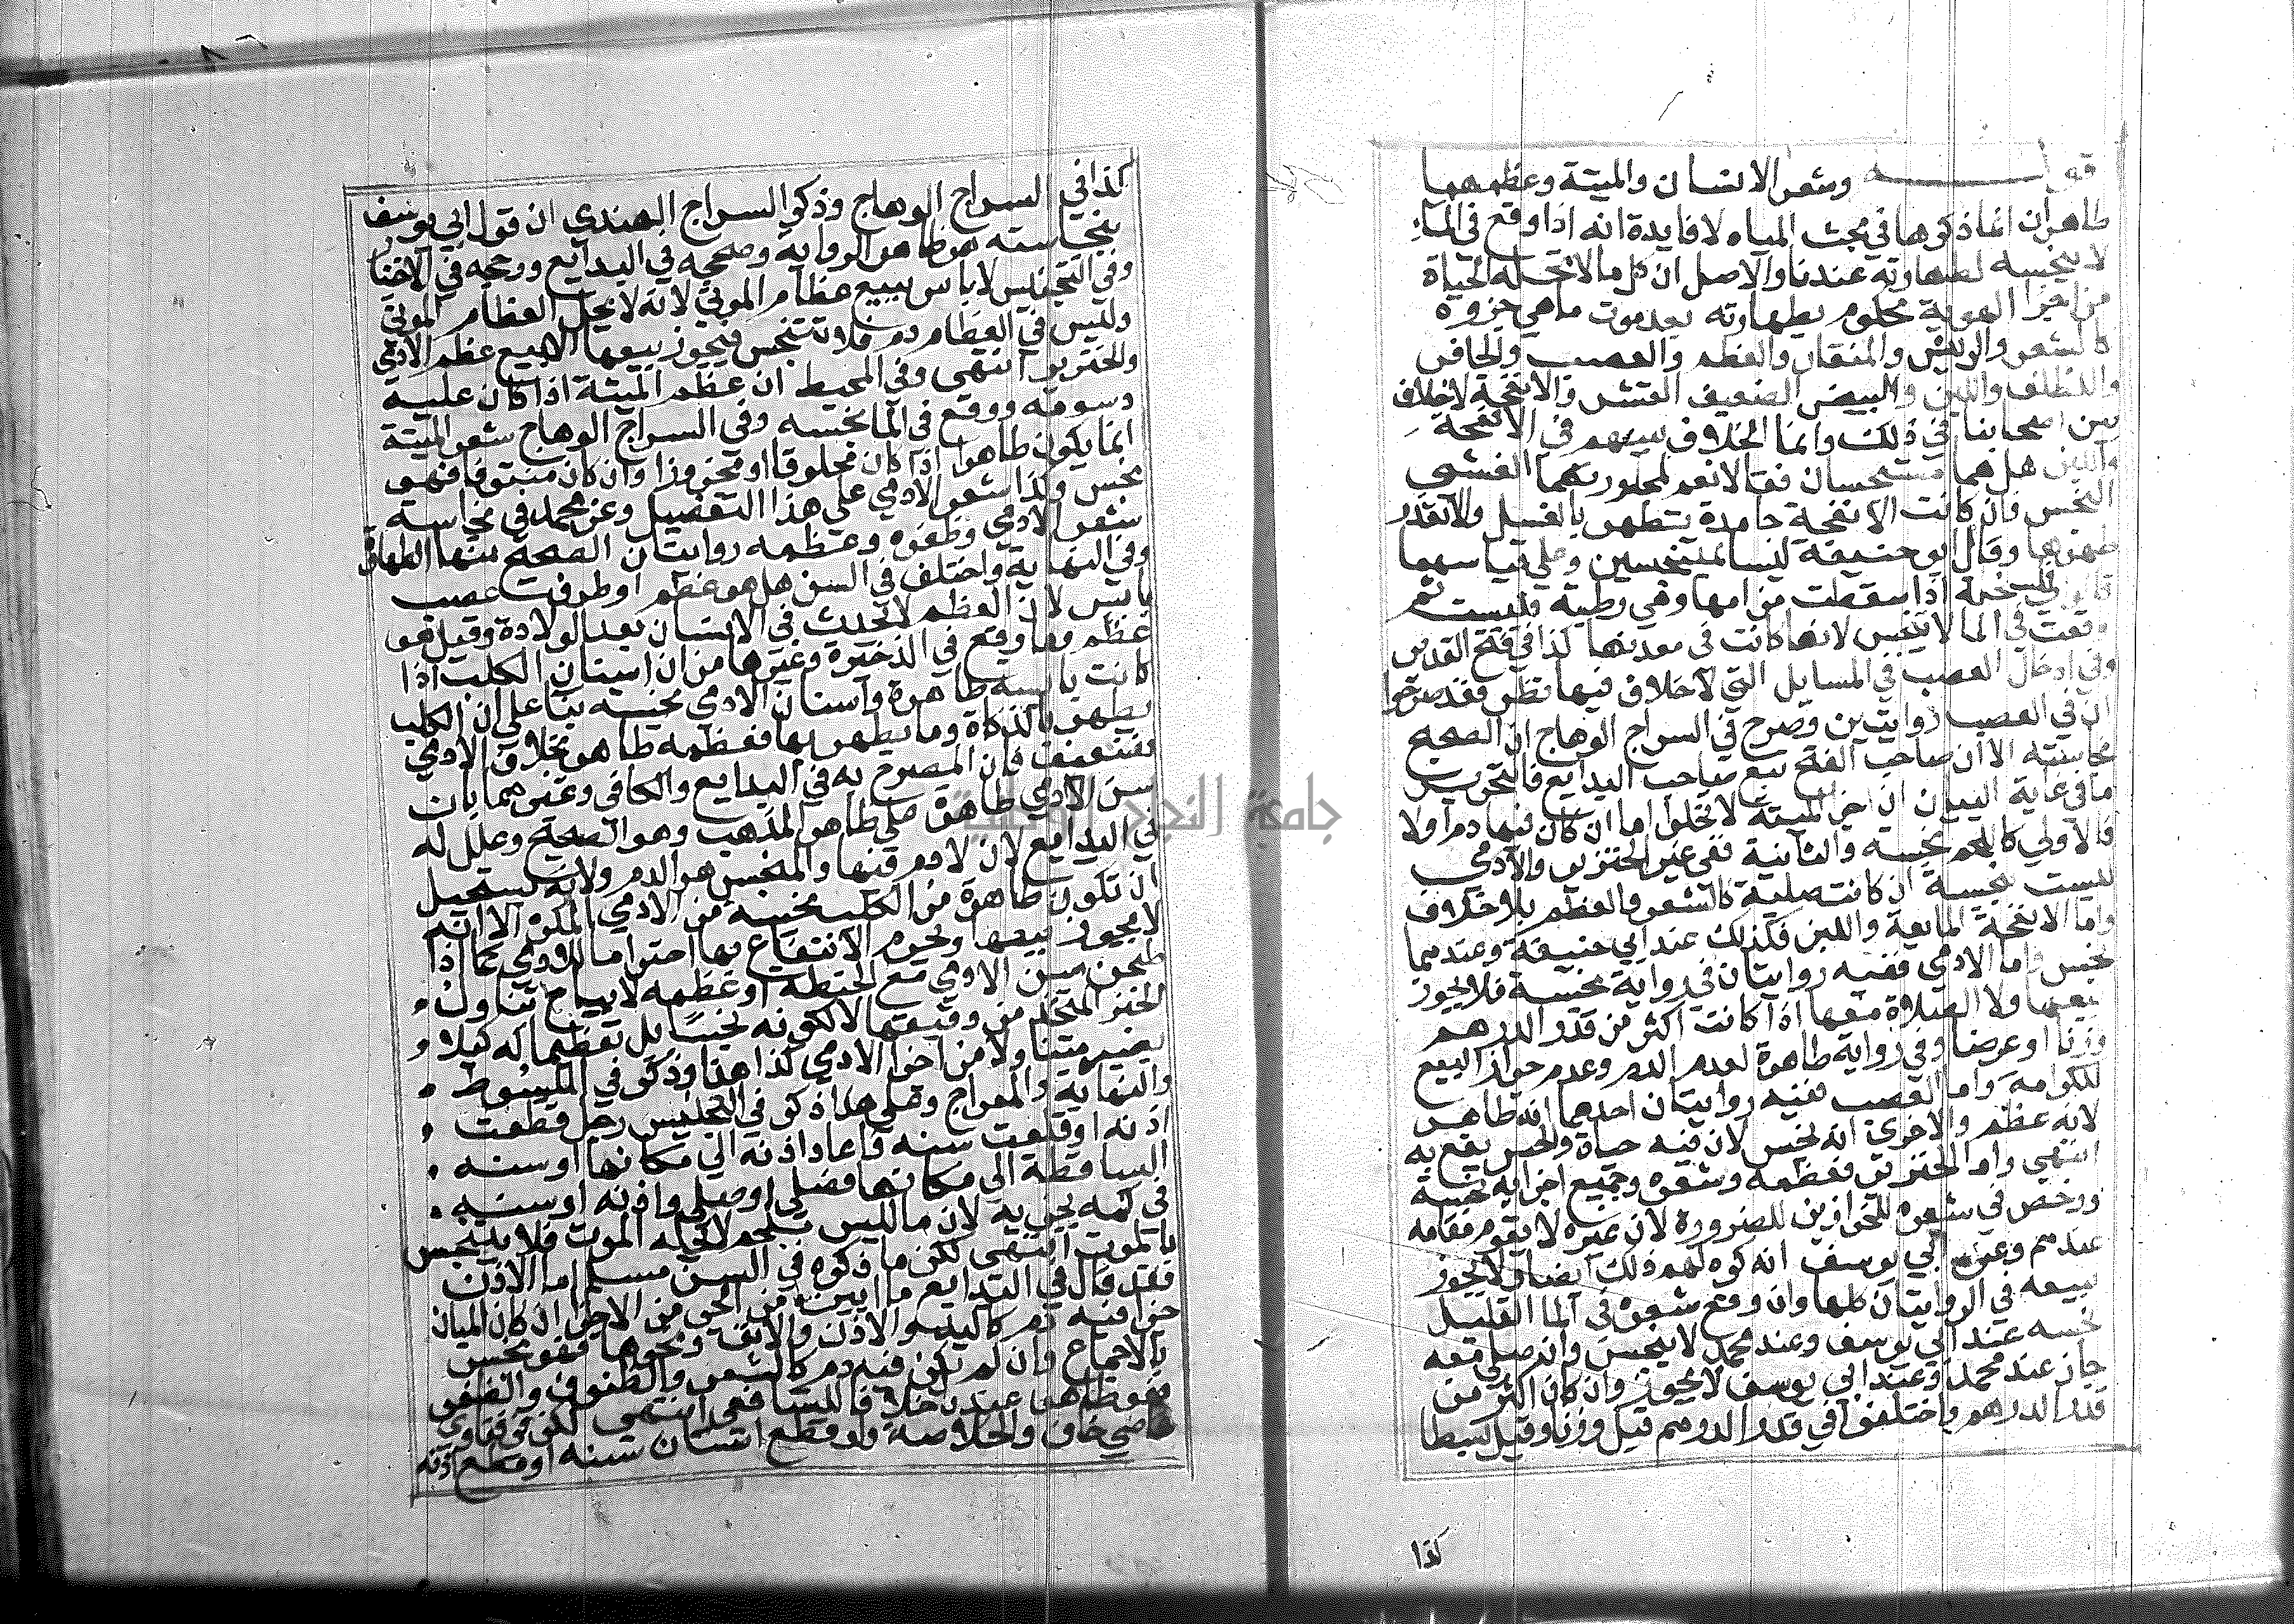 قوله وشعر الانسان والميتة وعظمهما
طاهران انما ذكرها في بحث المياه لافايدة انه اذا وقع في الماء
لا ينجسه لطهارته عندنا والاصل ان كل ما لا تحله الحياة
من اجزا الهوية محكوم بطهارته بعد موت ما هي جزوه
كالشعر والريش والمنقار والعظم والعصب والحافر
والظلف واللبن والبيض الضعيف القشر والانفحة لا خلاف
بين اصحابنا في ذلك وانما الخلاف بينهم في الانفحة
واللبن هل هما متنجسان فقالا نعم لمجاورتهما الغشي
النجس فان كانت الانفحة جامدة تطهر بالغسل والا تعذر
طهرها وقال ابو حنيفة ليسا بمتنجسين وعلي قياسهما
قالوا في السخلة اذا سقطت من امها وهي رطبة فيبست ثم
وقعت في الما لا ينجس لانها كانت في معدنها كذا في فتح القدير
وفي ادخال العصب في المسايل التي لا خلاف فيها نظر فقد صرحوا
ان في العصب روايتين وصرح في السراج الوهاج ان الصحيح
نجاسته الا ان صاحب الفتح تبع صاحب البدايع فالتحرير
ما في غاية البيان ان اجزا الميتة لا تخلوا اما ان كان فيها دم اولا
فالاولي كاللحم نجسة والثانية ففي غير الخنزير والادمي
ليست بنجسة ان كانت صلبة كالشعر والعظم بلا خلاف
واما الانفحة المايعة واللبن فكذلك عند ابي حنيفة وعندهما
نجس واما الادمي ففيه روايتان في رواية نجسة فلا يجوز
بيعها ولا الصلاة معها اذا كانت اكثر من قدر الدرهم
وزنا او عرضا وفي رواية طاهرة لعدم الدم وعدم جواز البيع
للكرامة واما العصب ففيه روايتان احدهما انه طاهر
لانه عظم والاخري انه نجس لان فيه حياة والحس يقع به
انتهي واما الخنزير فعظمه وشعره وجميع اجزايه نجسة
ورخص في شعره للخرازين للضرورة لان غيره لا يقوم مقامه
عندهم وعن ابي يوسف انه كره لهم ذلك ايضا ولا يجوز
بيعه في الروايتان كلها وان وقع شعره في الما القليل
نجسه عند ابي يوسف وعند محمد لا ينجس وان صلي معه
جاز عند محمد وعند ابي يوسف لا يجوز وان كان اكثر من
قدر الدرهم واختلفوا في قدر الدرهم قيل وزنا وقيل بسيطا
كذا
كذا في السراج الوهاج وذكر السراج الهندي ان قول ابي يوسف
بنجاسته هو ظاهر الرواية وصححه في البدايع ورجحه في الاختيار
وفي التجنيس لا باس ببيع عظام الموتي لانه لا يحل العظام الموتي
وليس في العظام دم فلا تتنجس فيجوز بيعها الا بيع عظم الادمي
والخنزير انتهي وفي المحيط ان عظم الميتة اذا كان عليه
دسومة ووقع في الما نجسه وفي السراج الوهاج شعر الميتة
انما يكون طاهرا اذا كان محلوقا او مجزوزا وان كان منتوفا فهو
نجس وكذا شعر الادمي علي هذا التفصيل وعن محمد في نجاسة
شعر الادمي وظفره وعظمه روايتان الصحيح منها الطهارة
وفي النهاية واختلف في السن هل هو عظم او طرف عصب
يابس لان العظم لا يحدث في الانسان بعد الولادة وقيل هو
عظم وما وقع في الذخيرة وغيرها من ان اسنان الكلب اذا
كانت يابسة طاهرة واسنان الادمي نجسة بنا علي ان الكلب
يطهر بالذكاة وما يطهر بها فعظمه طاهر بخلاف الادمي
فضعيف فان المصرح به في البدايع والكافي وغيرهما بان
سن الادمي طاهرة علي ظاهر المذهب وهو الصحيح وعلل له
في البدايع لان لا دم فيها والمنجس هو الدم ولانه يستحيل
ان تكون طاهرة من الكلب نجسة من الادمي المكرم الا انه
لا يجوز بيعها ويحرم الانتفاع بها احتراما للادمي كما اذا
طحن سن الادمي مع الحنطة او عظمه لا يباح تناول
الخبز المتخذ من دقيقها لا لكونه نجسا بل تعظيما له كيلا
يصير متناولا من اجزا الادمي كذا هنا وذكر في المبسوط
والنهاية والمعراج وعلي هذا ذكر في التجنيس رجل قطعت
اذنه او قلعت سنه فاعاد اذنه الي مكانها او سنه
الساقطة الي مكانها فصلي او صلي واذنه او سنه
في كمه يجزيه لان ما ليس بلحم لا يحله الموت فلا يتنجس
بالموت انتهي لكن ما ذكره في السن مسلم اما الاذن
فقد قال في البدايع ما ابين من الحي من الاجزا ان كان المبان
جزا فيه دم كاليد والاذن والانف ونحوها فهو نجس
بالاجماع وان لم يكن فيه دم كالشعر والصوف والظفر
فهو طاهر عندنا خلافا للشافعي انتهي لكن في فتاوي
قاضي خان والخلاصة ولو قطع انسان سنه او قطع اذنه